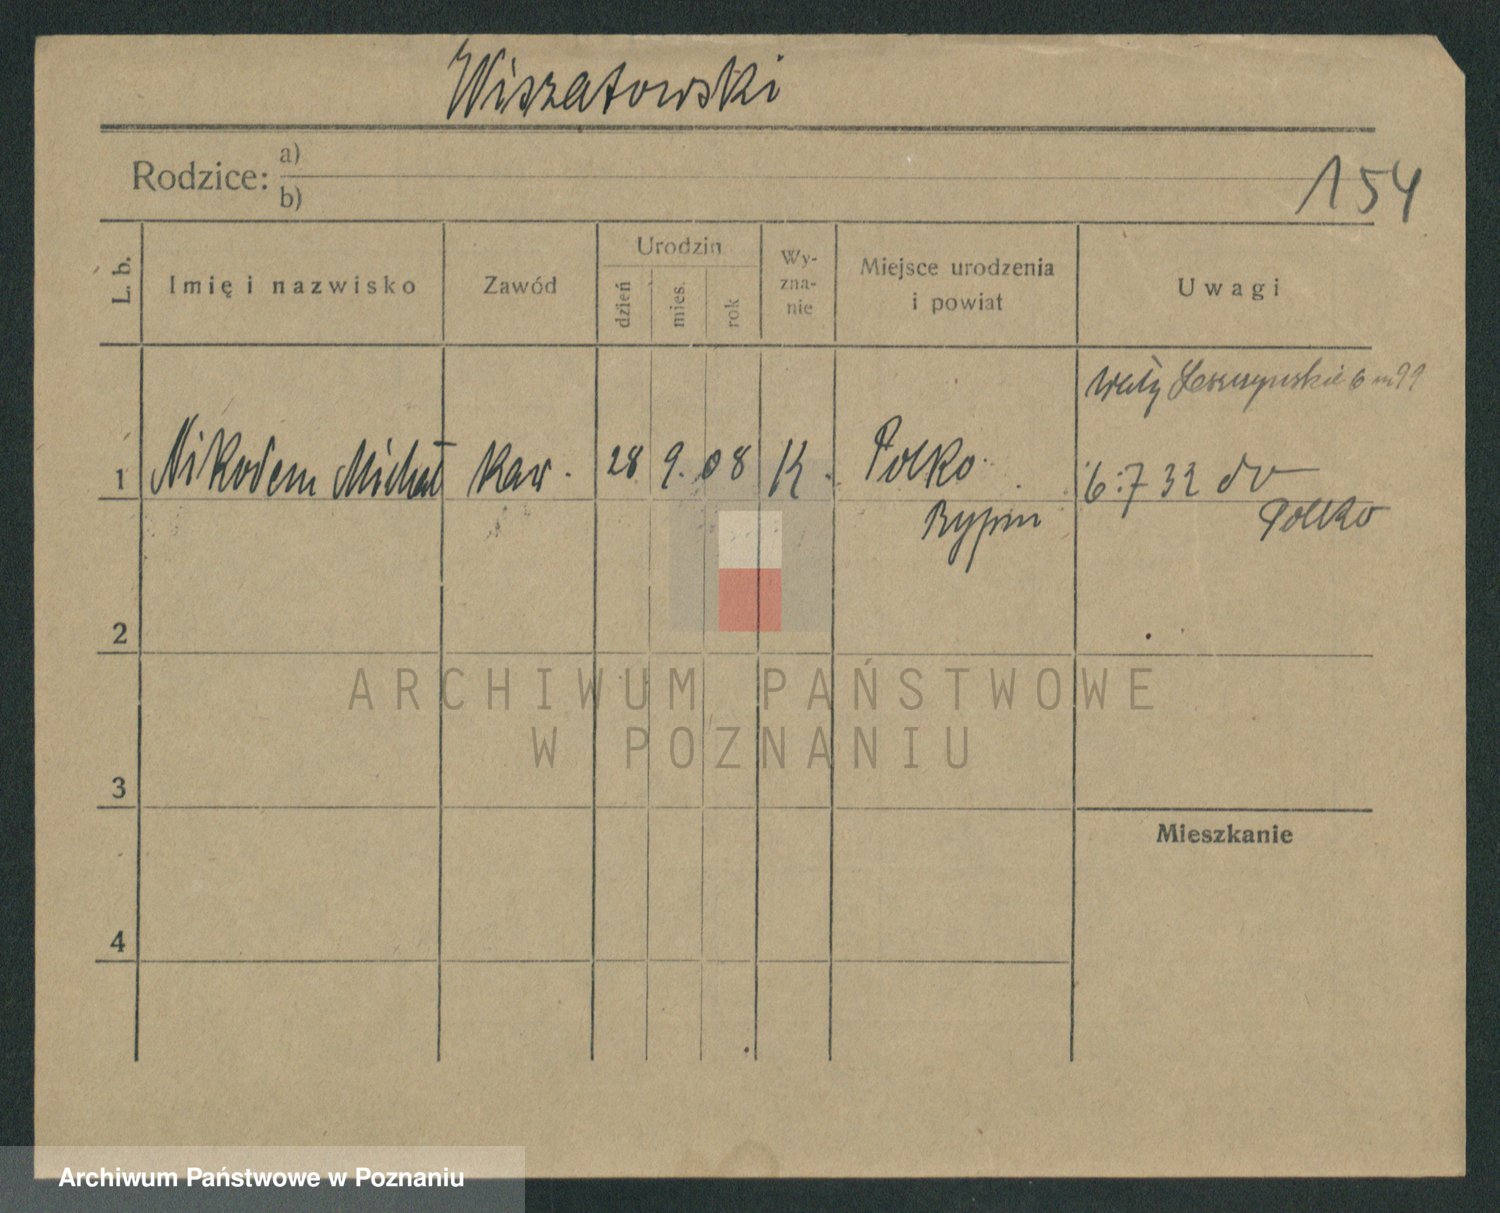 Wiszatowski
Rodzice: a)
b)
154
L. b.
Imię i nazwisko
Zawód
Urodzin
dzień
mies.
rok
Wy-
zna-
nie
Miejsce urodzenia
i powiat
Uwagi
Wały Leszczyńskie 6 m 99
1 Nikodem Michał kaw. 28 9. 08 K. Polko Rypin
6.7 32 do
Polko
2
3
Mieszkanie
4
ARCHIWUM PAŃSTWOWE
W POZNANIU
Archiwum Państwowe w Poznaniu